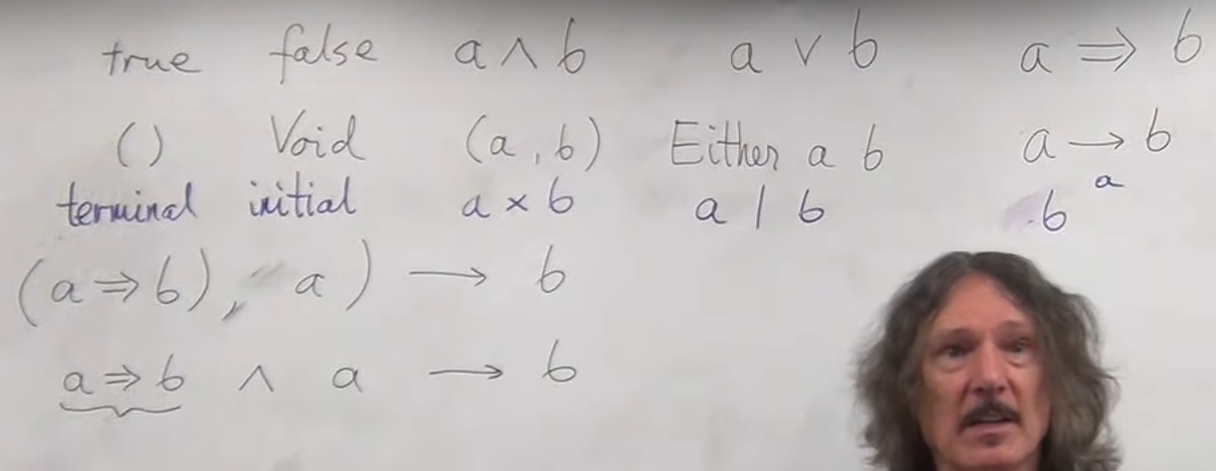 true false a ∧ b a ∨ b a ⇒ b
() Void (a, b) Either a b a → b
terminal initial a × b a | b bᵃ
(a ⇒ b), a) → b
a ⇒ b ∧ a → b